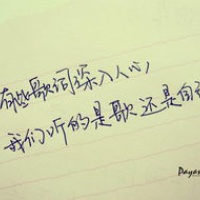 有些歌词深入人心，
我们听的是歌还是自
Dayas